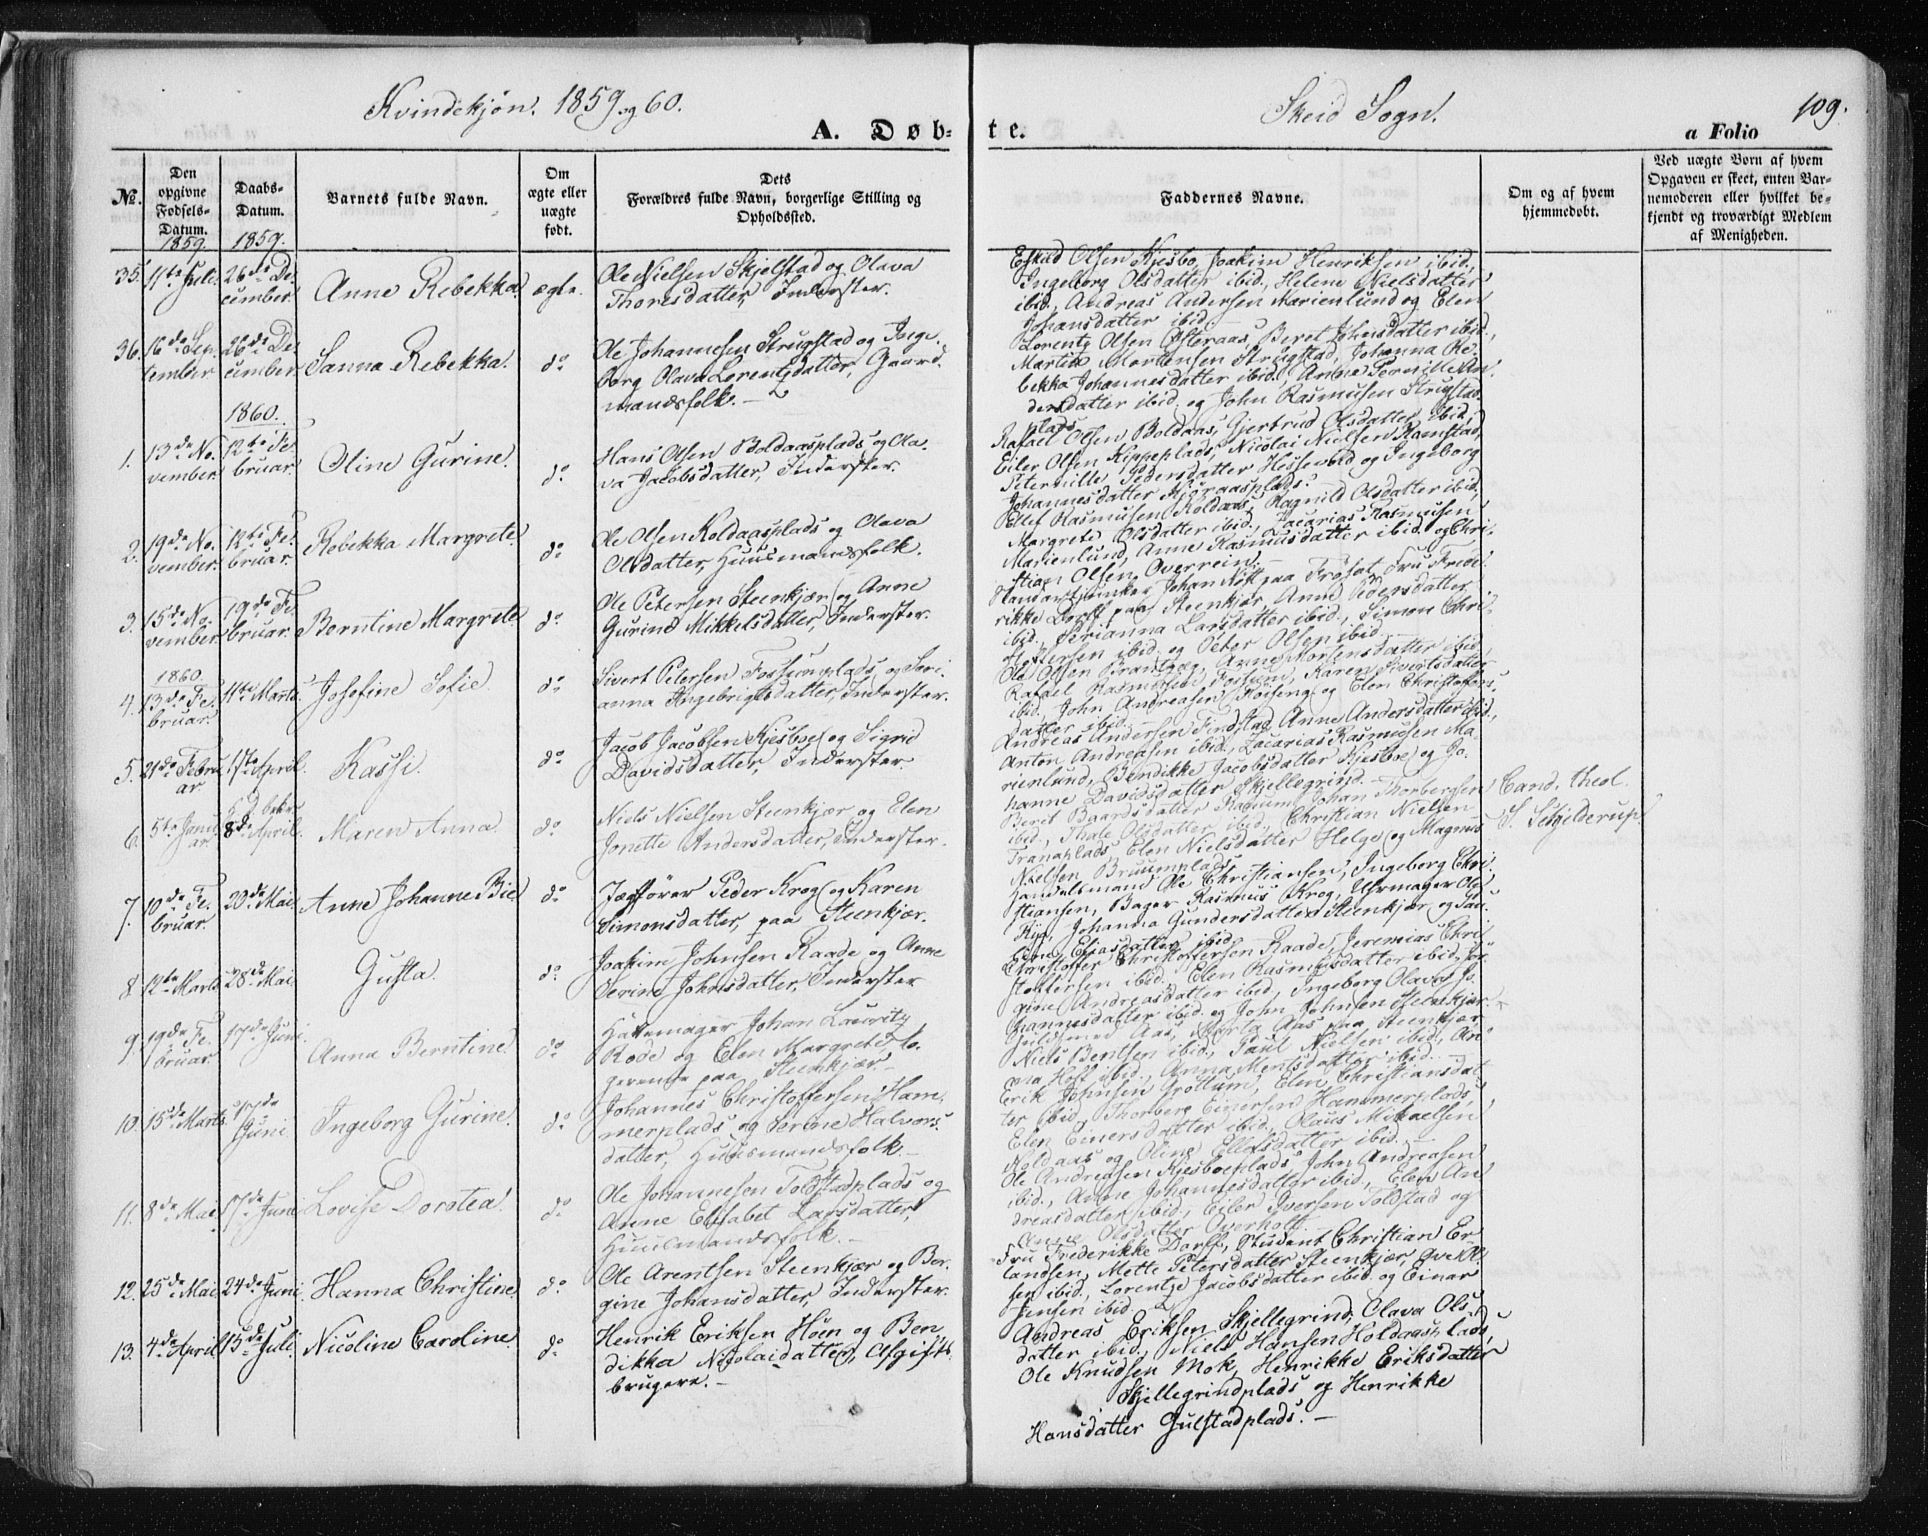 Kvindekjøn. 1859 og 60.
Skeid Sogn.
109.
A. Døb-
te.
a Folio
No.
Den
opgivne
Fødsels-
Datum.
Daabs-
Datum.
Barnets fulde Navn.
Om
ægte eller
uægte
født.
Dets
Forældres fulde Navn, borgerlige Stilling og
Opholdssted.
Faddernes Navne.
Om og af hvem
hjemmedøbt.
Ved uægte Børn af hvem
Opgaven er skeet, enten Bar-
nemoderen eller hvilket be-
kjendt og troværdigt Medlem
af Menigheden.
1859. 1859.
35. 11te Juli. 26de De-
cember. Anne Rebekka. ægte.
Ole Nielsen Skjelstad og Olava
Thoresdatter, Inderster.
Eskild Olsen Kjesbo, Joakim Henriksen ibid,
Ingeborg Olsdatter ibid., Helene Nielsdatter
ibid., Andreas Andersen Marienlund og Elen
Johansdatter ibid.
36. 16de Sep-
tember 26de De-
cember Sanna Rebekka. do
Ole Johannesen Strugstad og Inge-
borg Olava Lorentsdatter, Gaard-
mandsfolk. —
Lorentz Olsen Østeraas, Beret Johnsdatter ibid.,
Martin Mortensen Strugstad, Johanna Re-
bekka Johannesdatter ibid., Anne Pernille An-
dersdatter ibid. og John Rasmusen Strugstad-
plads
1860.
1. 13de No-
vember. 12te Fe-
bruar. Oline Gurine. do
Hans Olsen Boldaasplads og Ola-
va Jacobsdatter, Inderster.
Rafael Olsen Boldaas, Gjertrud Olsdatter ibid,
Eiler Olsen Kippeplads, Nicolai Nielsen Ramstad,
Peternille Pedersdatter Hessevold og Ingeborg
Johannesdatter
2. 19de No-
vember. 12te Fe-
bruar. Rebekka Margrete. do
Ole Olsen Roldaasplads og Olava
Olsdatter, Huusmandsfolk.
Ellef Rasmusen Roldaas, Ragnild Olsdatter ibid,
Margrete Olsdatter ibid., Zacarias Rasmusen
Marienlund, Anne Rasmusdatter ibid. og Chri-
stian Olsen Overrein.
3. 15de No-
vember 19de Fe-
bruar. Berntine Margrete do
Ole Petersen Steenkjær og Anne
Gurine Mikkelsdatter, Inderster.
Standartjunker Johan paa Frøsat, Fru Frede-
rikke Dorff paa Steenkjær, Anne Pedersdatter
ibid., Serianna Larsdatter ibid., Simon Chri-
stensen ibid. og Peter Olsen ibid.
1860.
4. 13de Fe-
bruar. 11te Marts. Josefine Sofie. do
Sivert Petersen Fossumplads og Seri-
anna Ingebrigtsdatter, Inderster.
Ole Olsen Anne Mortensdatter ibid.,
Rafael Rasmusen Fossum, Karen Sivertsdatter
ibid., John Andreasen og Elen Christoffers-
datter ibid.
5. 21de Febru-
ar 17de April. Kassi. do
Jacob Jacobsen Kjesboe og Sigrid
Davidsdatter, Inderster
Andreas Andersen Findstad, Anne Andersdatter ibid.,
Anton Andreasen ibid., Zacarias Rasmusen Ma-
rienlund, Bendikke Jacobsdatter Kjesboe og Jo-
hanne Davidsdatter Skjellegrind.
6. 5te Janu-
ar 8de April. Maren Anna. do
Niels Nielsen Steenkjær og Elen
Jonette Andersdatter, Inderster.
Berit Johan Thorbergsen
ibid., Thale Olsdatter ibid., Christian Nielsen
Tranaplads, Elen Nielsdatter Helge og Magnus
Nielsen Bruumplads.
Cand. theol.
S. Schjelderup
7. 10de Fe-
bruar. 20de Mai. Anne Johanne Bie. do
Jægtfører Peder Krog og Karen
Simonsdatter, paa Steenkjær.
Handelsmand Ole Christiansen, Ingeborg Chri-
stiansen, Bager Rasmus Krog, Uhrmager Ole
Rye, Johanna Gundersdatter Steenkjær og
Eliasdatter ibid.
8. 12te Marts 28de Mai. Gusta. do
Joakim Johnsen Raade og Anne
Serine Johnsdatter, Inderster
Christoffer Christoffersen Raade, Jeremias Chri-
stoffersen ibid., Elen Rasmusdatter ibid., Jør-
gine Andreasdatter ibid., Ingeborg Olava Jo-
hannesdatter ibid. og John Johnsen Steenkjær.
9. 19de Fe-
bruar. 17de Juni. Anna Berntine. do
Hattemager Johan Lauritz
Rode og Elen Margrete
paa Steenkjær.
Guldsmed Aas, Aas paa Steenkjær,
Niels Bentsen ibid., Paul Nielsen ibid., An-
Hoff ibid., Anna Mentsdatter ibid. —
10. 15de Marts. 17de
Juni Ingeborg Gurine. do
Johannes Christoffersen Ham-
merplads og Serine Halvors-
datter, Huusmandsfolk. —
Erik Johnsen Grøttum, Elen Christiansdat-
ter ibid., Thorberg Einersen Hammerplads,
Elen Einersdatter ibid., Olaus Mikaelsen
Roldaas og Oline Ellefsdatter ibid. —
11. 8de Mai 17de Juni Lovise Dorotea. do
Ole Johannesen Toldstadplads og
Anne Elisabet Larsdatter,
Huusmandsfolk. —
Ole Andreasen Kjesboeplads, John Andreasen
ibid., Anne Johannesdatter ibid., Elen An-
dreasdatter ibid., Eiler Iversen Toldstad og
Anne Olsdatter Overholt.
12. 25de Mai 24de Juni Hanna Christine. do
Ole Arentsen Steenkjær og Ber-
gine Johansdatter, Inderster.
Fru Frederikke Dorff, Student Christian Er-
landsen, Mette Petersdatter Steenkjær,
sen ibid., Lorentze Jacobsdatter ibid. og Einar
Jensen ibid.
13. 4de April 15de Juli. Nicoline Caroline. do
Henrik Eriksen Høen og Ben-
dikka Nicolaidatter, Afgifts-
brugere. —
Andreas Eriksen Skjellegrind, Olava Ols-
datter ibid., Niels Hansen Holdaasplads,
Ole Knudsen Mok, Henrikke Eriksdatter
Skjellegrindplads og Henrikke
Hansdatter Gulstadplads. —